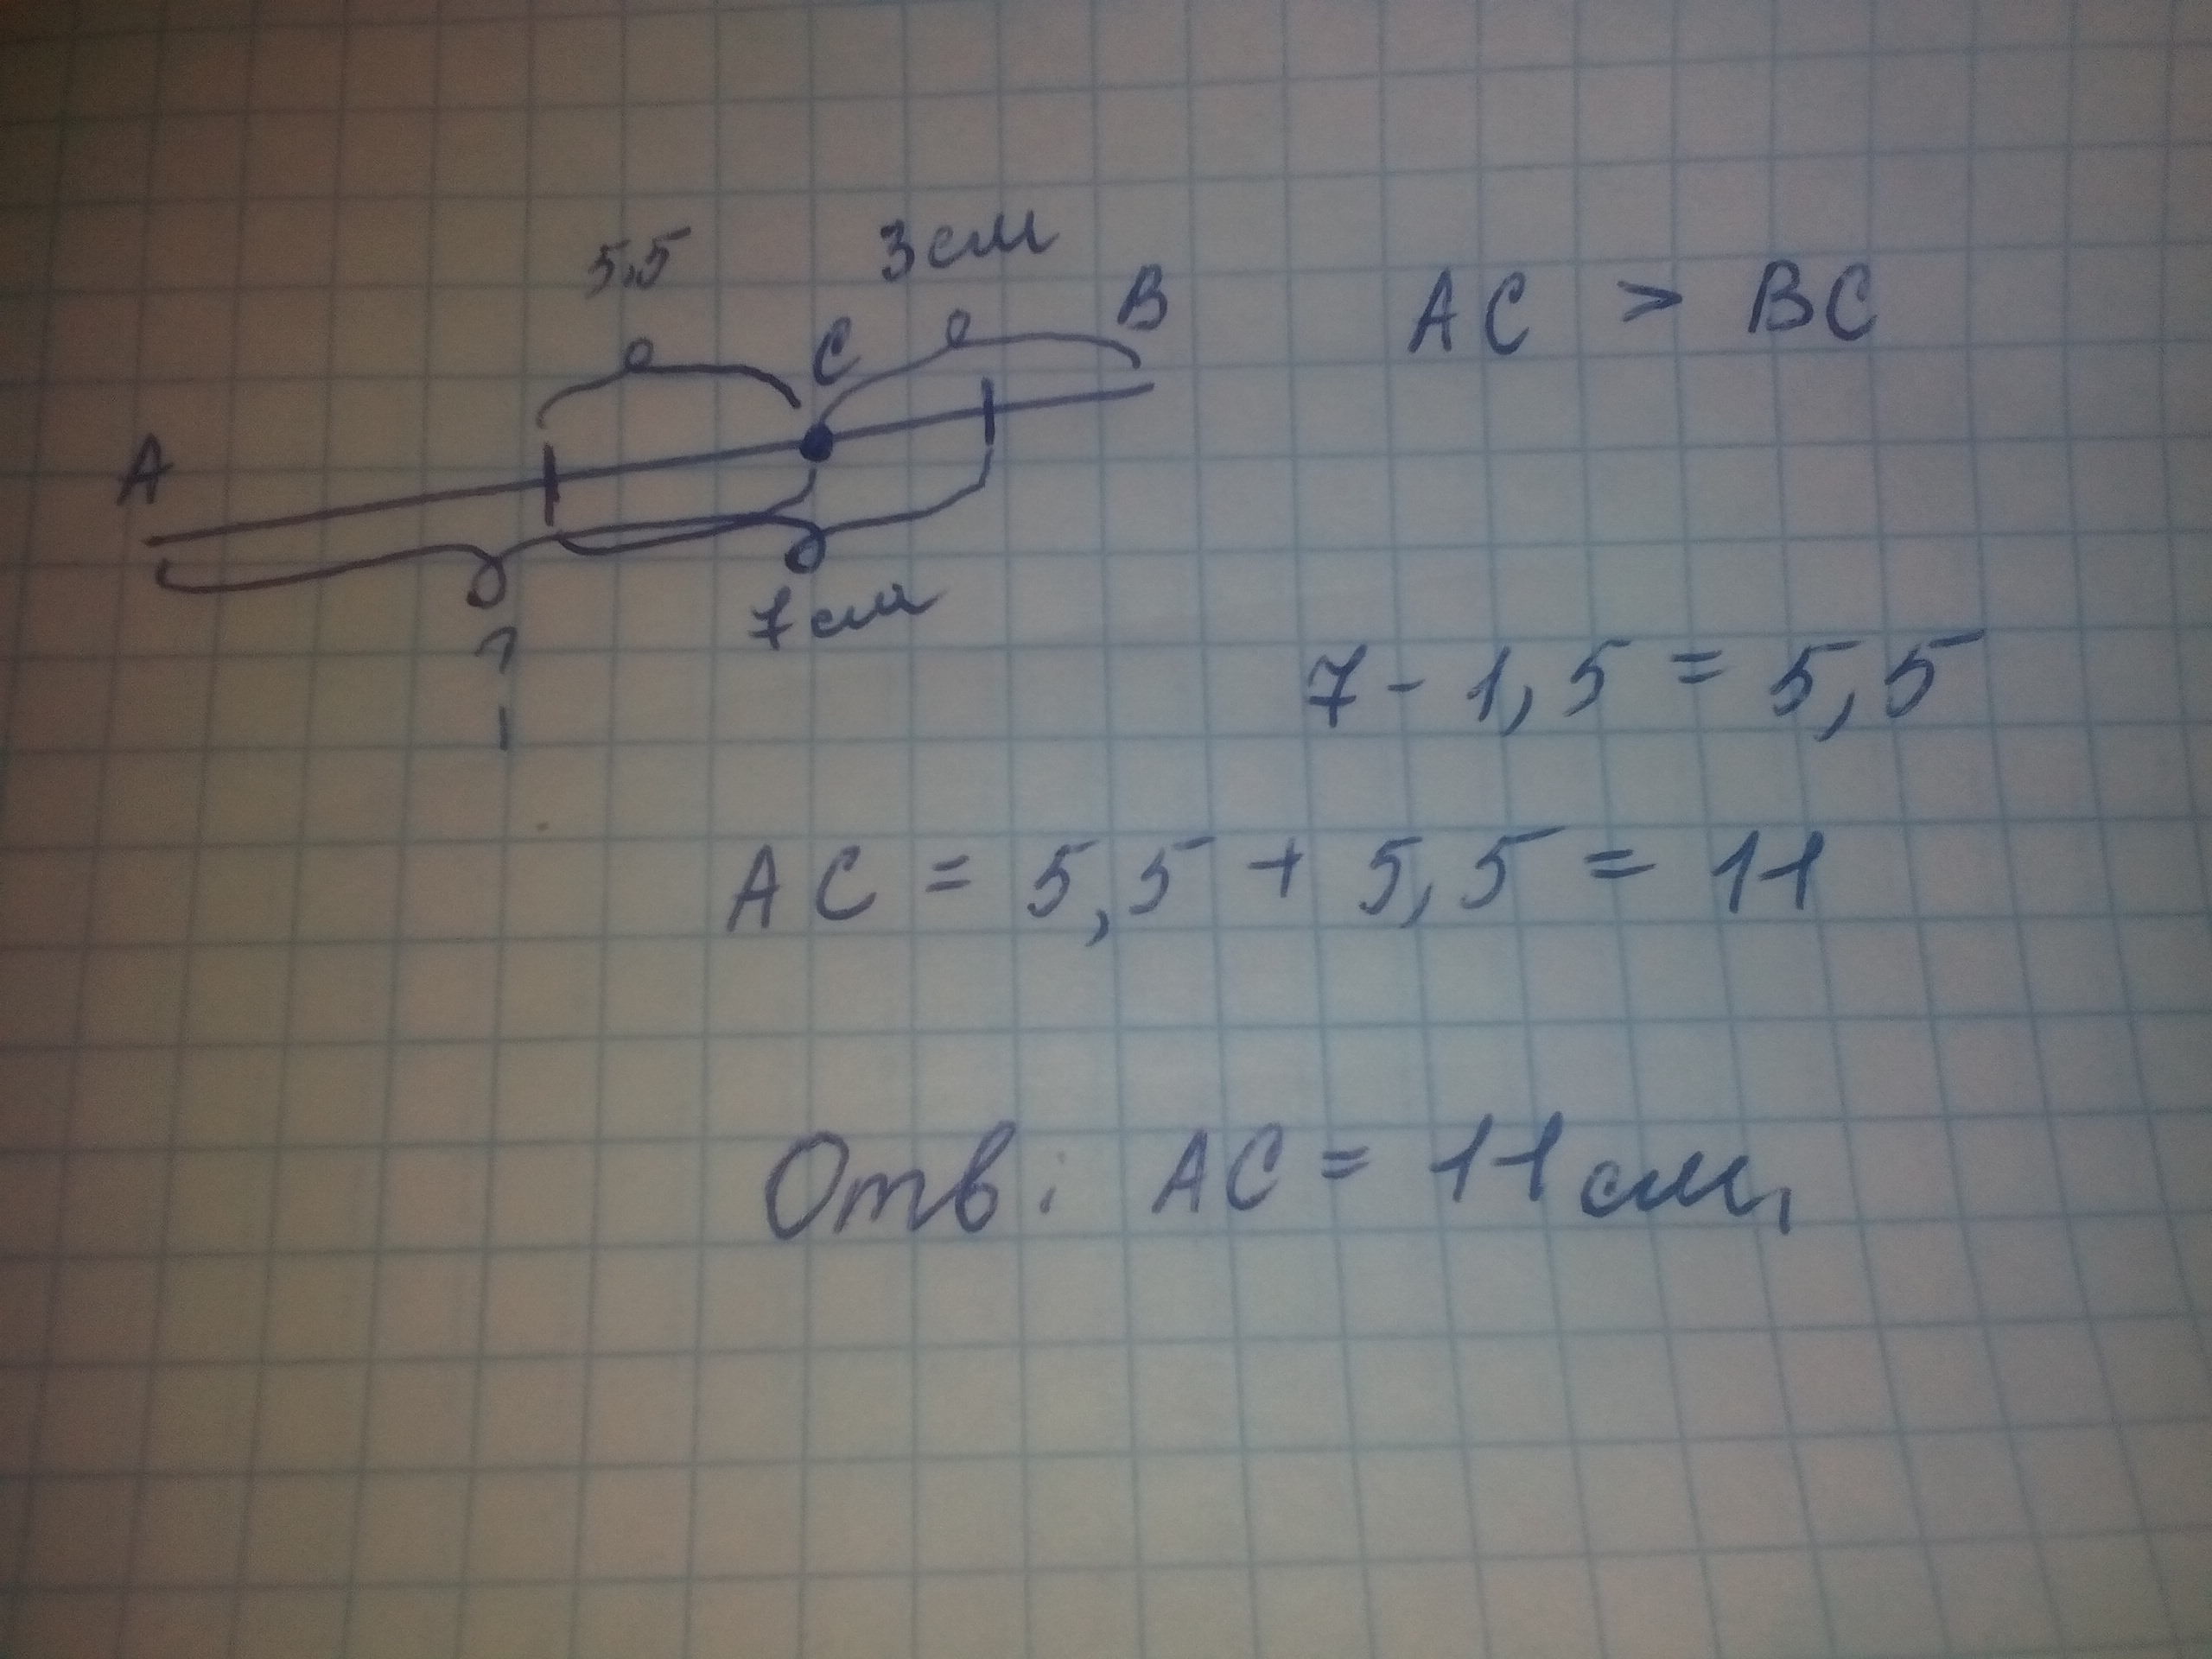 5,5 3см
A C B AC > BC
?
7см
7 - 1,5 = 5,5
AC = 5,5 + 5,5 = 11
Отв: AC = 11см,